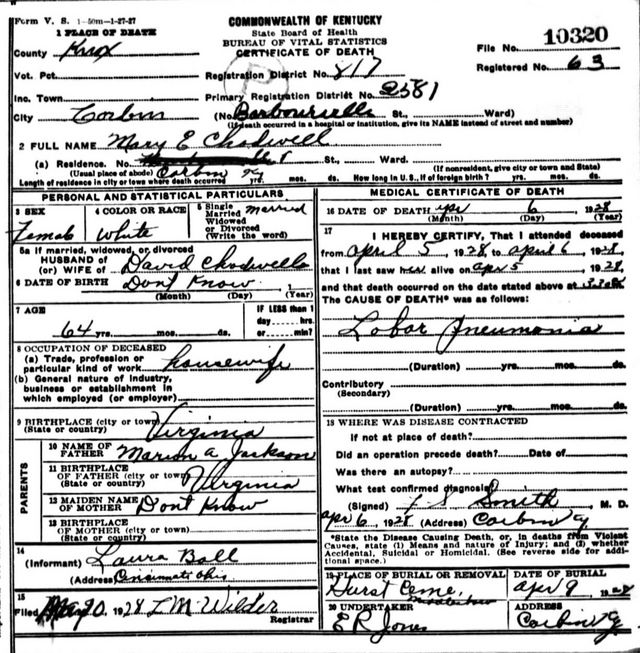 Form V. S. 1-50m-1-27-27
COMMONWEALTH OF KENTUCKY
State Board of Health
BUREAU OF VITAL STATISTICS
CERTIFICATE OF DEATH
1 PLACE OF DEATH
File No. 10320
County Knox
Registered No. 63
Vot. Pct.
Registration District No. 817
Inc. Town
Primary Registration District No. 2581
City Corbin
(No. Barbourville St., Ward)
(If death occurred in a hospital or institution, give its NAME instead of street and number)
2 FULL NAME Mary E Chadwell
(a) Residence. No. St., Ward.
(Usual place of abode) Corbin Ky (If nonresident, give city or town and State)
Length of residence in city or town where death occurred yrs. mos. ds. How long in U. S., if of foreign birth? yrs. mos. ds.
PERSONAL AND STATISTICAL PARTICULARS
3 SEX Female
4 COLOR OR RACE White
5 Single Married Widowed or Divorced (Write the word) Married
5a If married, widowed, or divorced
HUSBAND of
(or) WIFE of David Chadwell
6 DATE OF BIRTH Dont Know 1
(Month) (Day) (Year)
7 AGE
64 yrs. mos. ds.
IF LESS than 1
day hrs.
or min.?
8 OCCUPATION OF DECEASED
(a) Trade, profession or
particular kind of work housewife
(b) General nature of industry,
business or establishment in
which employed (or employer)
9 BIRTHPLACE (city or town)
(State or country) Virginia
PARENTS
10 NAME OF
FATHER Marion A. Jackson
11 BIRTHPLACE
OF FATHER (city or town)
(State or country) Virginia
12 MAIDEN NAME
OF MOTHER Dont Know
13 BIRTHPLACE
OF MOTHER (city or town)
(State or country)
14
(Informant) Laura Ball
(Address) Cincinnati Ohio
15
Filed 1928 L M Wilder
Registrar
MEDICAL CERTIFICATE OF DEATH
16 DATE OF DEATH Apr 6, 1928
(Month) (Day) (Year)
17
I HEREBY CERTIFY, That I attended deceased
from April 5, 1928, to April 6, 1928
that I last saw alive on Apr 5, 1928,
and that death occurred on the date stated above at
The CAUSE OF DEATH* was as follows:
Lobar Pneumonia
(Duration) yrs. mos. ds.
Contributory
(Secondary)
(Duration) yrs. mos. ds.
18 WHERE WAS DISEASE CONTRACTED
If not at place of death?
Did an operation precede death? Date of
Was there an autopsy?
What test confirmed diagnosis?
(Signed) Smith, M. D.
Apr 6, 1928 (Address) Corbin Ky
*State the Disease Causing Death, or, in deaths from Violent
Causes, state (1) Means and nature of Injury; and (2) whether
Accidental, Suicidal or Homicidal. (See reverse side for addi-
tional space.)
19 PLACE OF BURIAL OR REMOVAL
Hurst Ceme.
DATE OF BURIAL
Apr 9, 1928
20 UNDERTAKER
E R Jones
ADDRESS
Corbin Ky